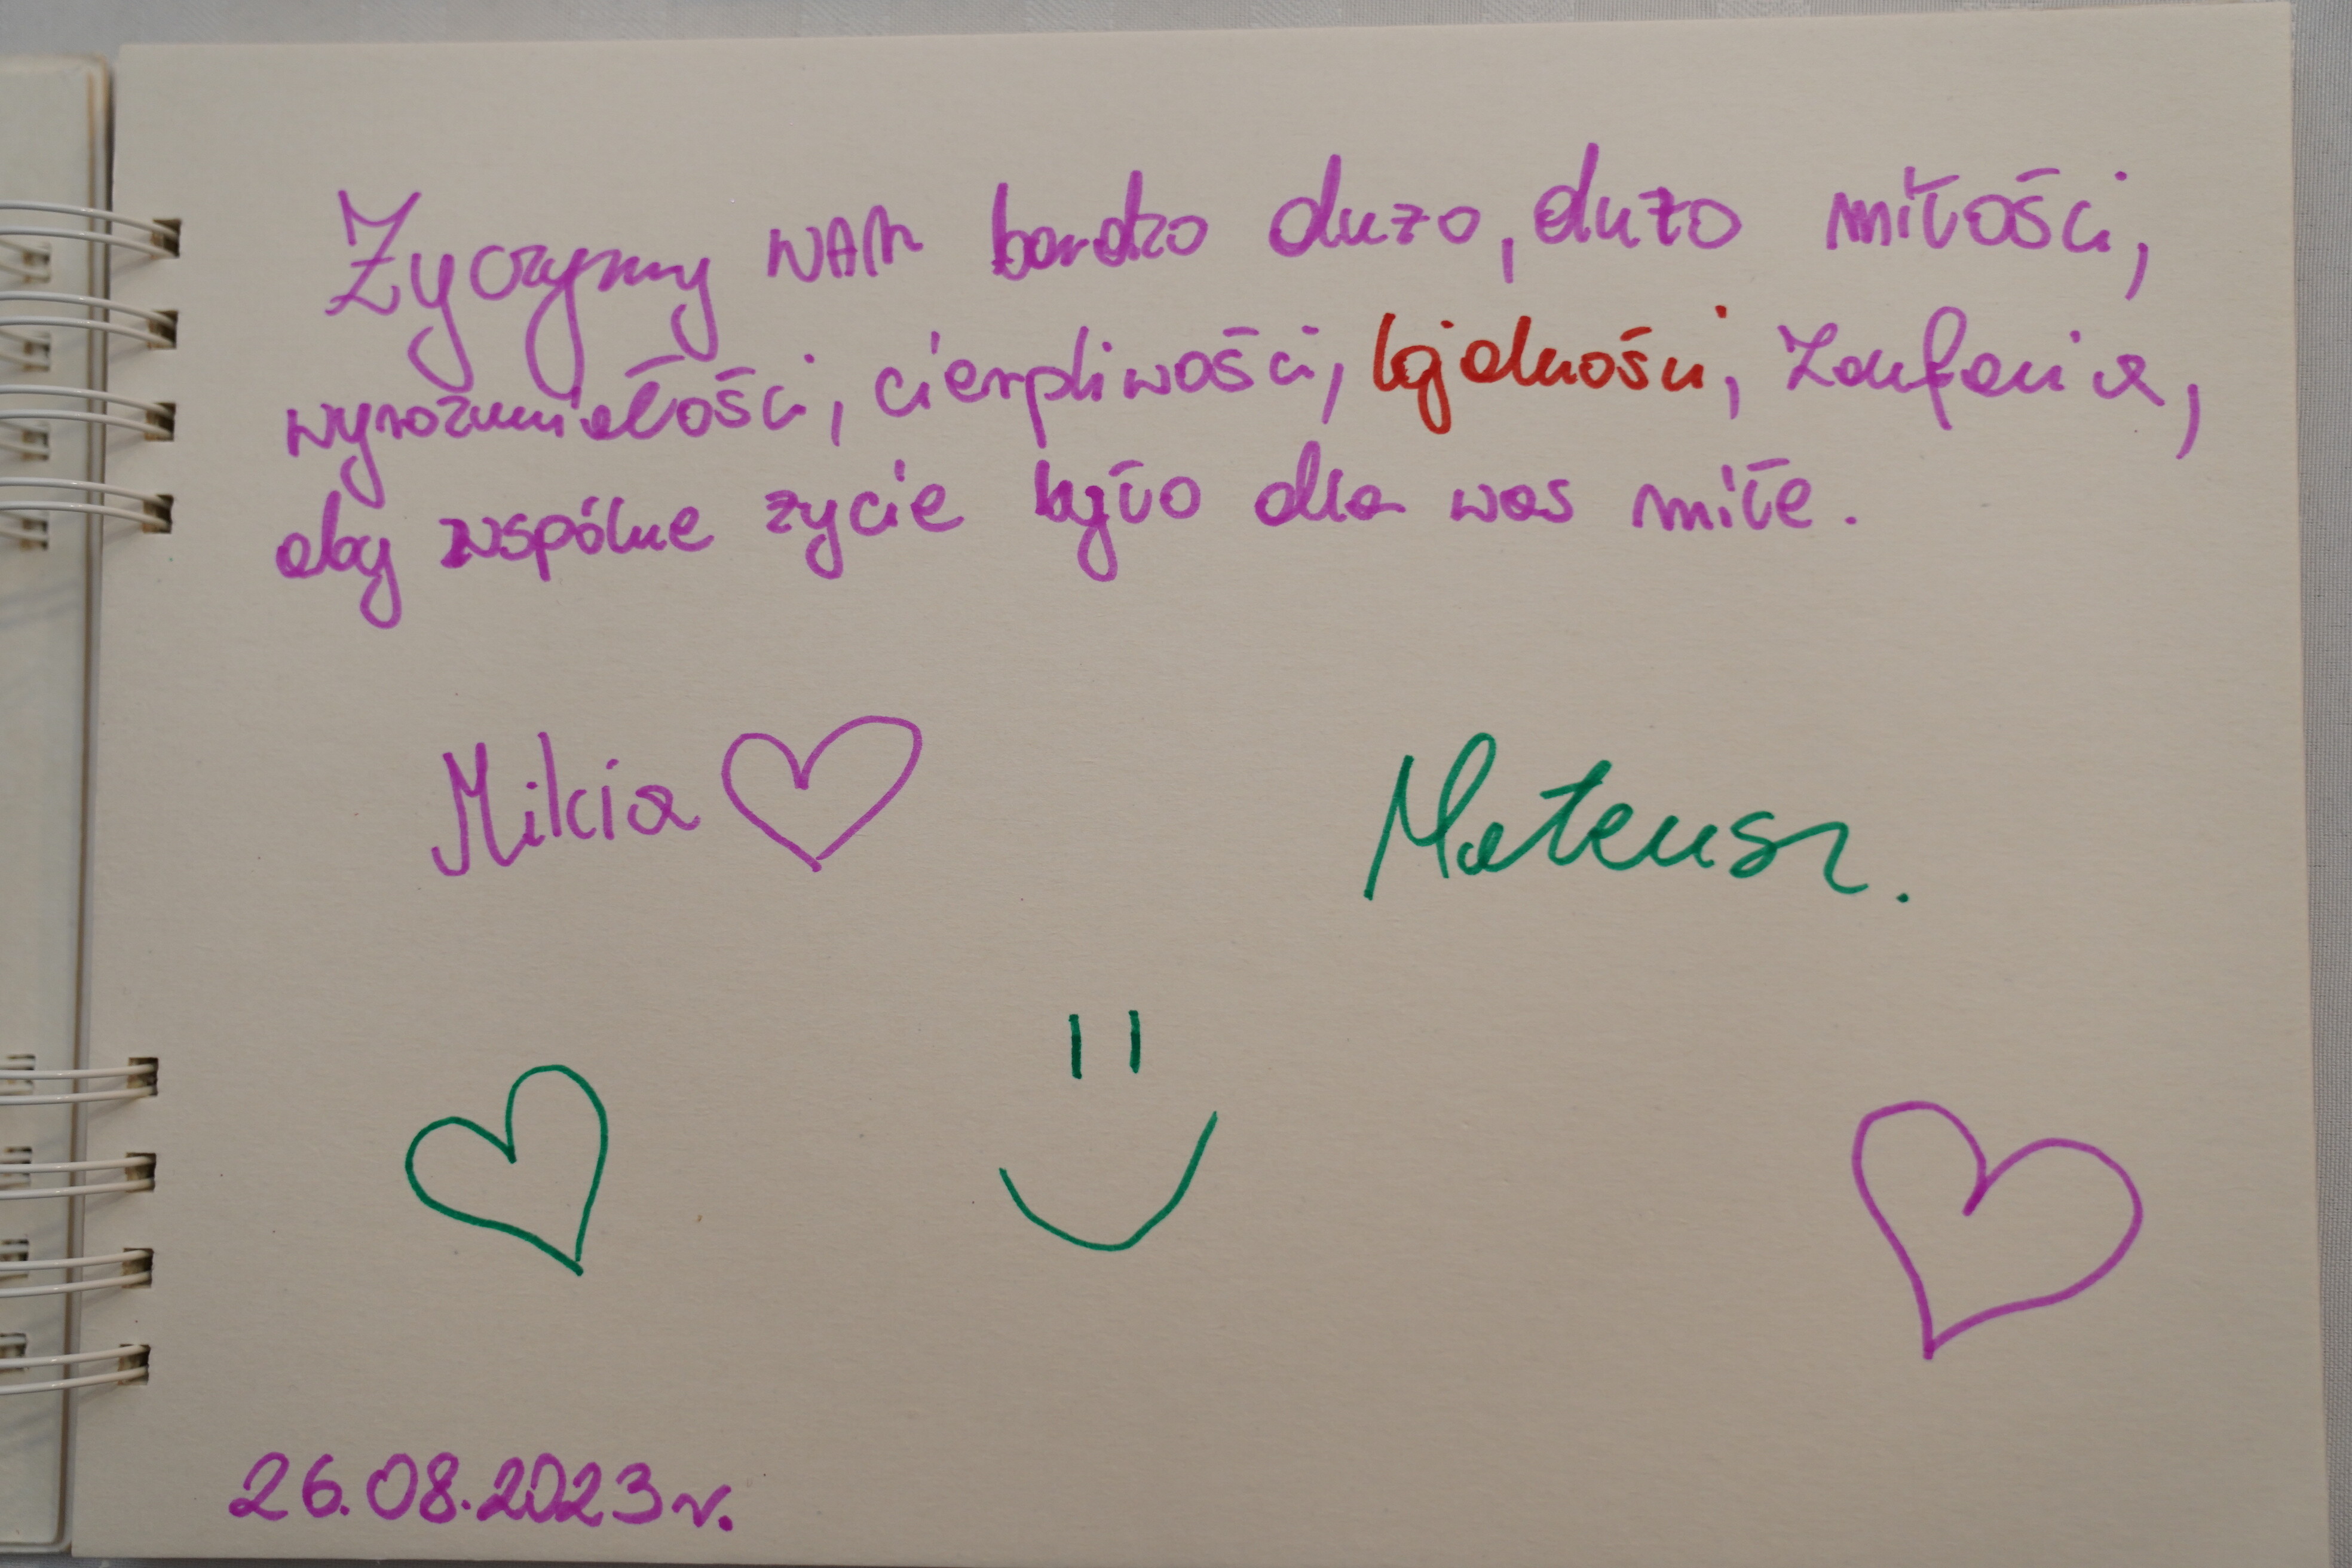 Życzymy WAM bardzo dużo, dużo miłości,
wyrozumiałości, cierpliwości, lojalności, zaufania,
aby wspólne życie było dla was miłe.
Milcia Mateusz.
26.08.2023r.